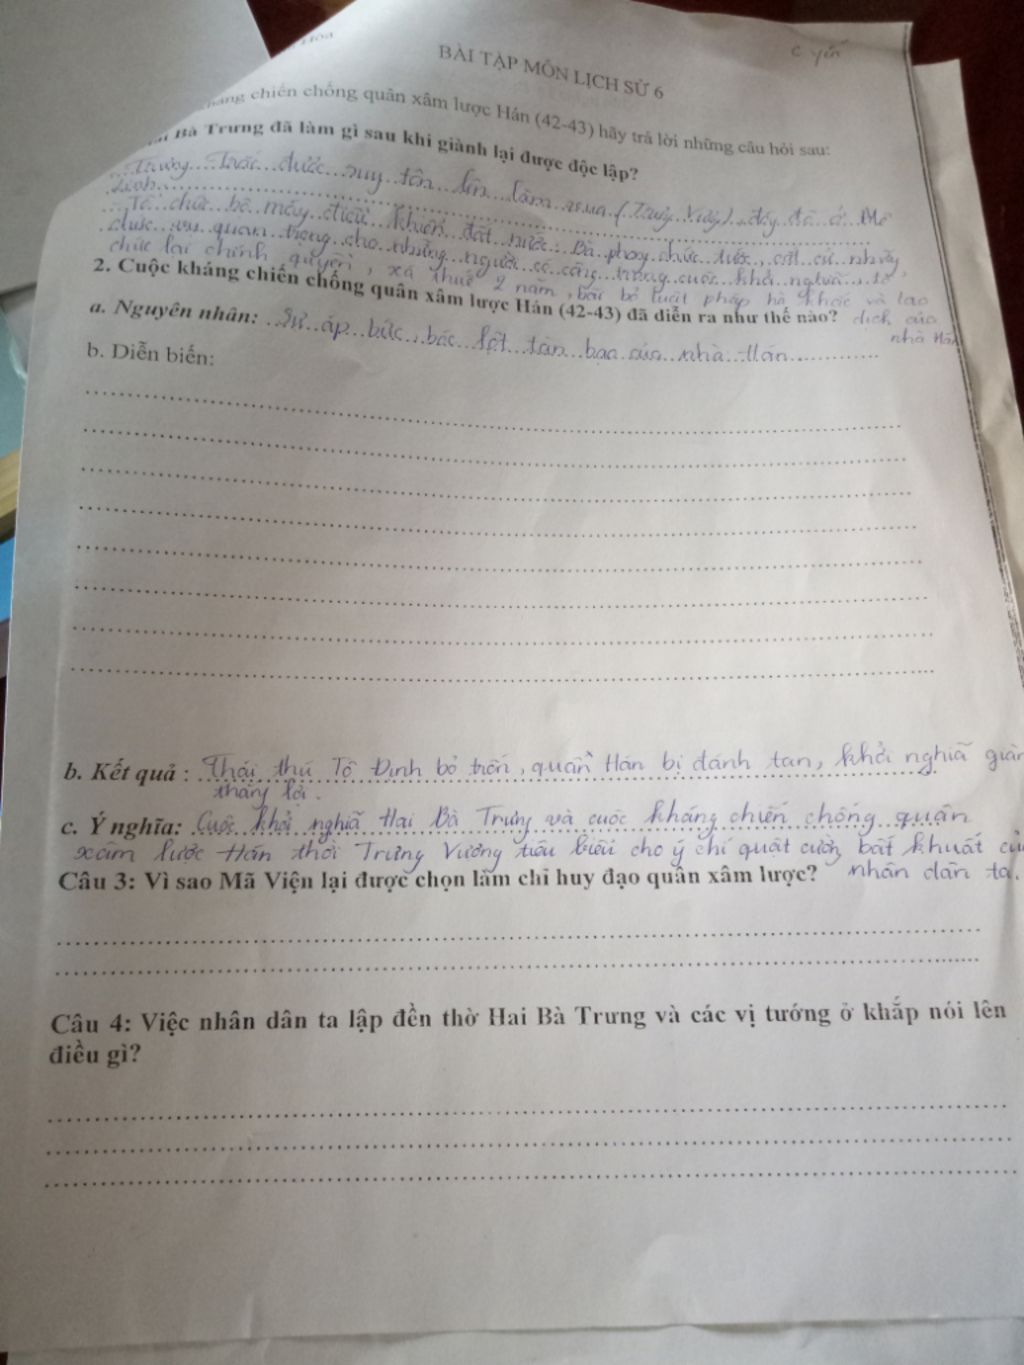 Hòa
C Yến
BÀI TẬP MÔN LỊCH SỬ 6
kháng chiến chống quân xâm lược Hán (42-43) hãy trả lời những câu hỏi sau:
Hai Bà Trưng đã làm gì sau khi giành lại được độc lập?
Trưng Trắc được suy tôn lên làm vua (Trưng Vương), đóng đô ở Mê
Linh.
Tổ chức bộ máy điều khiển đất nước. Bà phong chức tước, cắt cử những
chức vụ quan trọng cho những người có công trong cuộc khởi nghĩa, tổ
chức lại chính quyền, xá thuế 2 năm, bãi bỏ luật pháp hà khắc và lao
2. Cuộc kháng chiến chống quân xâm lược Hán (42-43) đã diễn ra như thế nào? dịch của
nhà Hán
a. Nguyên nhân: Sự áp bức, bóc lột tàn bạo của nhà Hán
b. Diễn biến:
b. Kết quả : Thái thú Tô Định bỏ trốn, quân Hán bị đánh tan, khởi nghĩa giàn
thắng lợi.
c. Ý nghĩa: Cuộc khởi nghĩa Hai Bà Trưng và cuộc kháng chiến chống quân
xâm lược Hán thời Trưng Vương tiêu biểu cho ý chí quật cường bất khuất củ
nhân dân ta.
Câu 3: Vì sao Mã Viện lại được chọn làm chỉ huy đạo quân xâm lược?
Câu 4: Việc nhân dân ta lập đền thờ Hai Bà Trưng và các vị tướng ở khắp nói lên
điều gì?